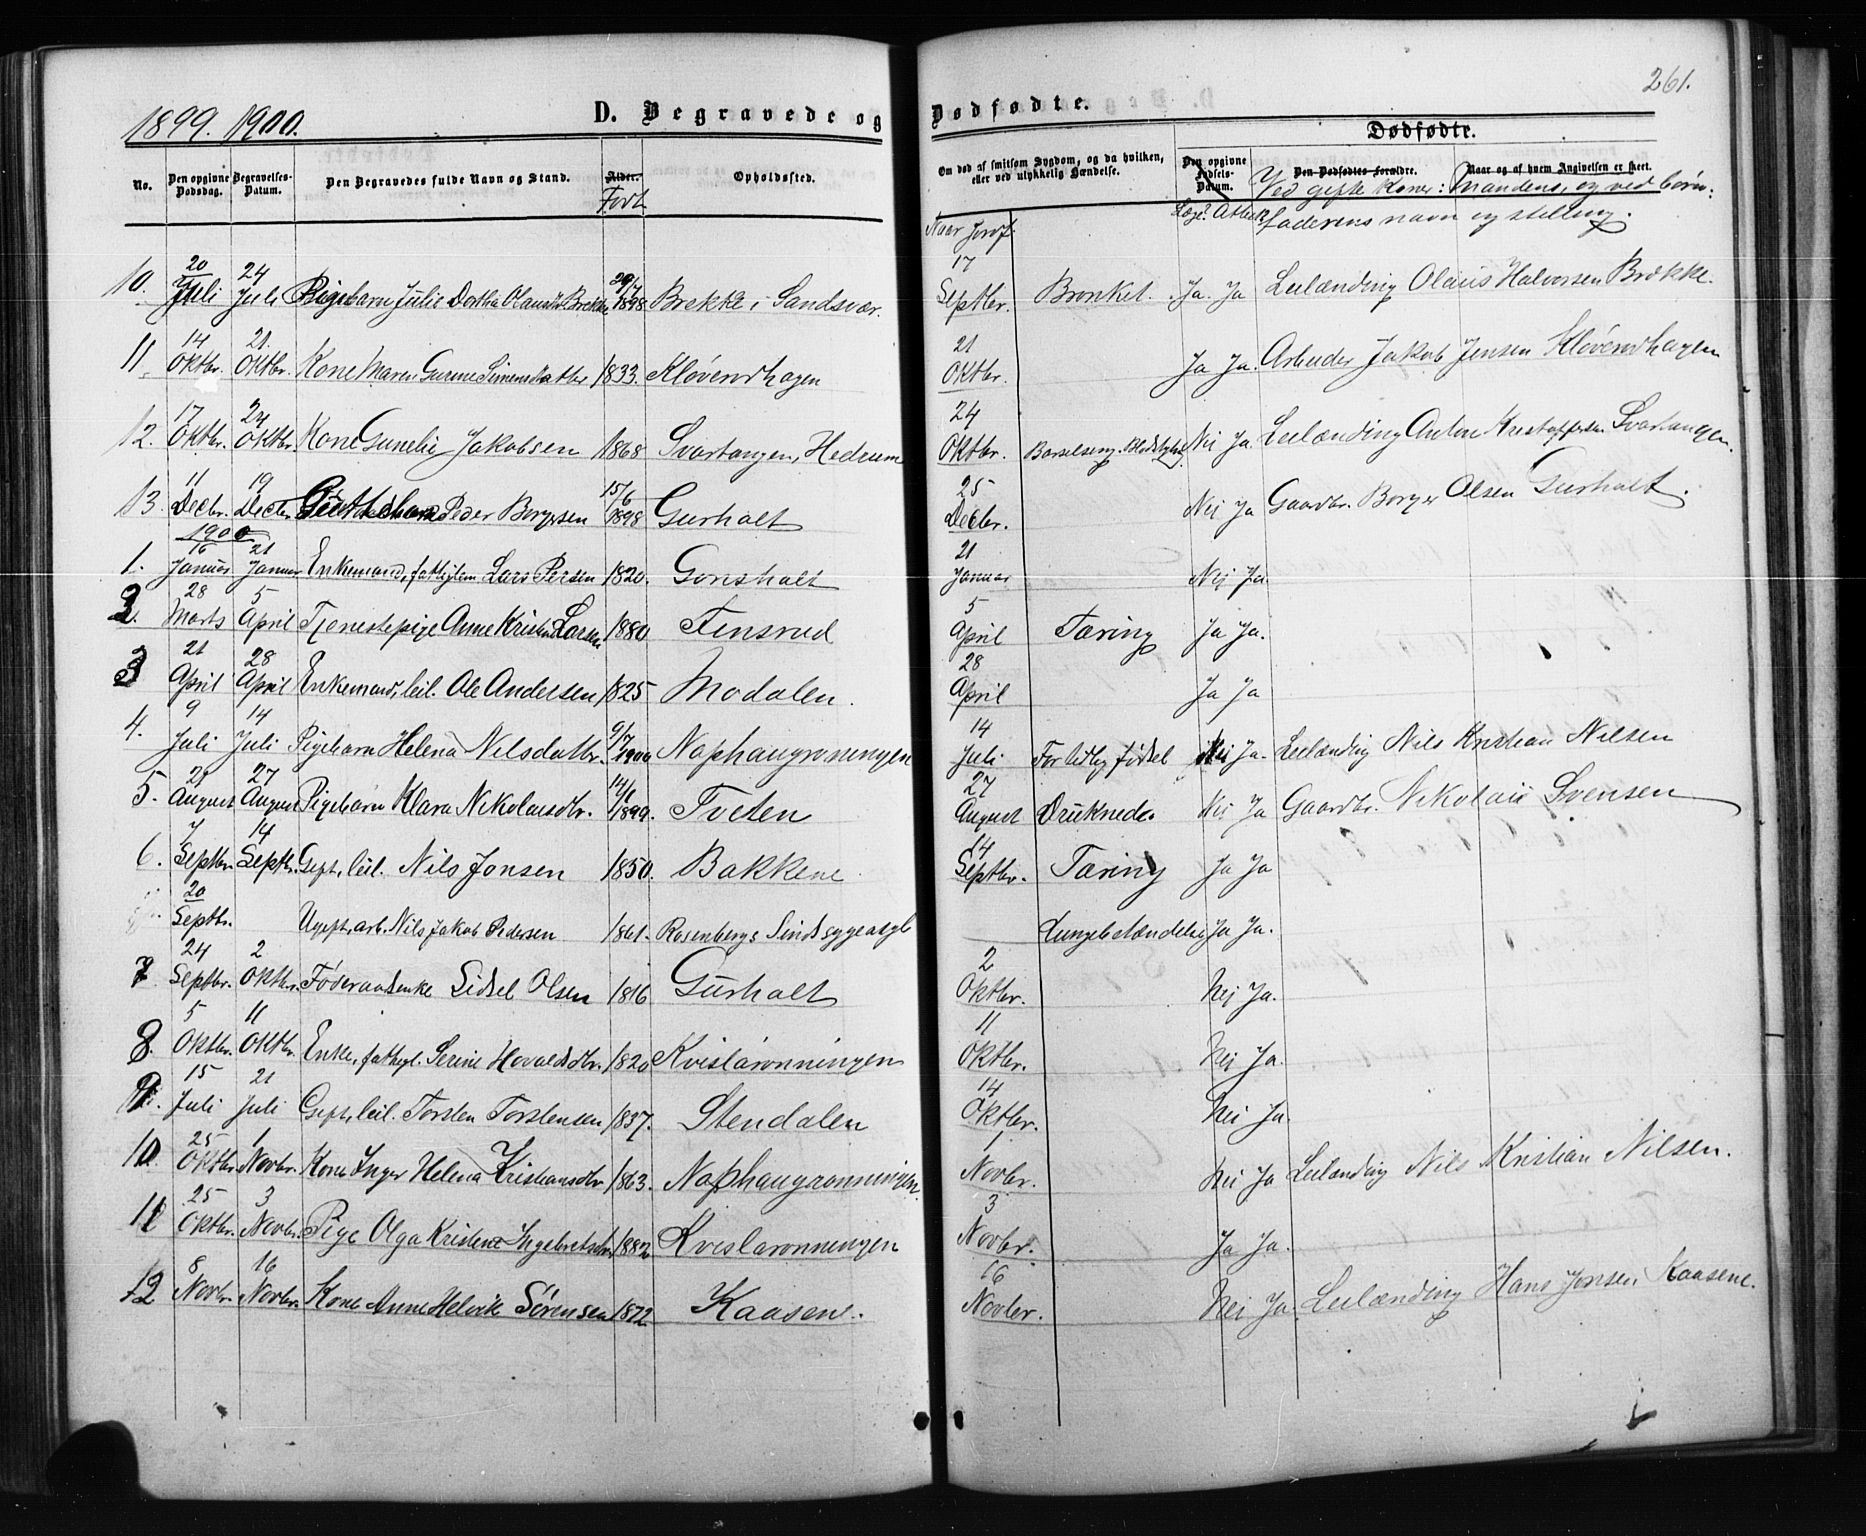 261.
1899. 1900.
D. Begravede og Dødfødte.
Dødfødte.
No.
Den opgivne Dødsdag.
Begravelses-Datum.
Den Begravedes fulde Navn og Stand.
Alder.
Født
Opholdssted.
Om død af smitsom Sygdom, og da hvilken, eller ved ulykkelig Hændelse.
Den opgivne Fødsels-Datum.
Den Dødfødtes Forældre.
Naar og af hvem Angivelsen er skeet.
Ved gifte koner: mandens, og ved børn:
faderens navn og stilling.
Naar Jordf.
10. 20 Juli 24 Juli Pigebarn Julie Dorthea Brekke 1898 Brekke i Sandsvær. 17 Septbr. Bronket. Ja. Ja Leilænding Olaus Halvorsen Brække.
11. 14 Oktbr. 21. Oktbr. Kone Maren Gurine Simensdatter 1833. Kløverudhagen 21 Oktbr. Ja Ja. Arbeider Jakob Jensen Kløverudhagen
12. 17 Oktbr. 24 Oktbr. Kone Gunelie Jakobsen 1868 Svartangen, Hedrum 24 Oktbr. Nei Ja Leilænding Anton Kristoffersen Svartangen.
13. 11 Decbr. 19 Decbr. Peder Borgersen 15/6 1898 Gurholt 25 Decbr. Nej Ja Gaardbr. Borger Olsen Gurholt.
1900
1. 16 Januar 21 Januar Enkemand, fattiglem Lars Persen 1820. Gonsholt 21 Januar Nej Ja
2. 28 Marts 5 April Tjenestepige Anne Kristine Larsen 1880 Tensrud 5 April Tæring Ja Ja.
3 21 April 28 April Enkemand, leil. Ole Andersen 1825 Modalen. 28 April Ja Ja
4. 9 Juli 14 Juli Pigebarn Helena Nilsdattr. 9/7 1900 Naphaugrønningen 14 Juli For tidlig fødsel Nei Ja. Leilænding Nils Kristian Nilsen
5. 21 August 27 August Pigebarn Klara Nikolaisdtr. 1899. Tveten 27 August Druknede. Nej Ja Gaardbr. Nikolais Svensen
6. 7 Septbr. 14 Septbr. Gift, leil. Nils Jonsen 1850. Bakkene 14 Septbr. Tæring Ja Ja
20 Septbr. Ugift, arb. Nils Jakob Pedersen 1861. Rosenbergs Sindssygeasyl Lungebetændelse Ja Ja.
7 24 Septbr. 2 Oktbr. Føderaadsenke Sidsel Olsen 1816 Gurholt 2 Oktbr. Nej Ja.
8. 5 Oktbr. 11 Oktbr. Enke, fattigl. Serine Hovaldsdtr. 1820 Kvislarønningen 11 Oktbr. Nej Ja.
9. 15 Juli 21 Juli Gift, leil. Torsten Torstensen 1837. Stendalen 14 Oktbr. Nei Ja.
10 25 Oktbr. 1 Novbr. Kone Inger Helena Kristiansdtr. 1863. Naphaugrønningen. 1 Novbr. Nei Ja Leilænding Nils Kristian Nilsen.
11 25 Oktbr. 3 Novbr. Pige Olga Kristine Ingebretsdtr. 1882 Kvislarønningen 3 Novbr. Ja Ja.
12 8 Novbr. 16 Novbr. Kone Anne Helvik Sørensen 1872 Kaasene. 16 Novbr. Nei Ja. Leilænding Hans Jonsen Kaasene.